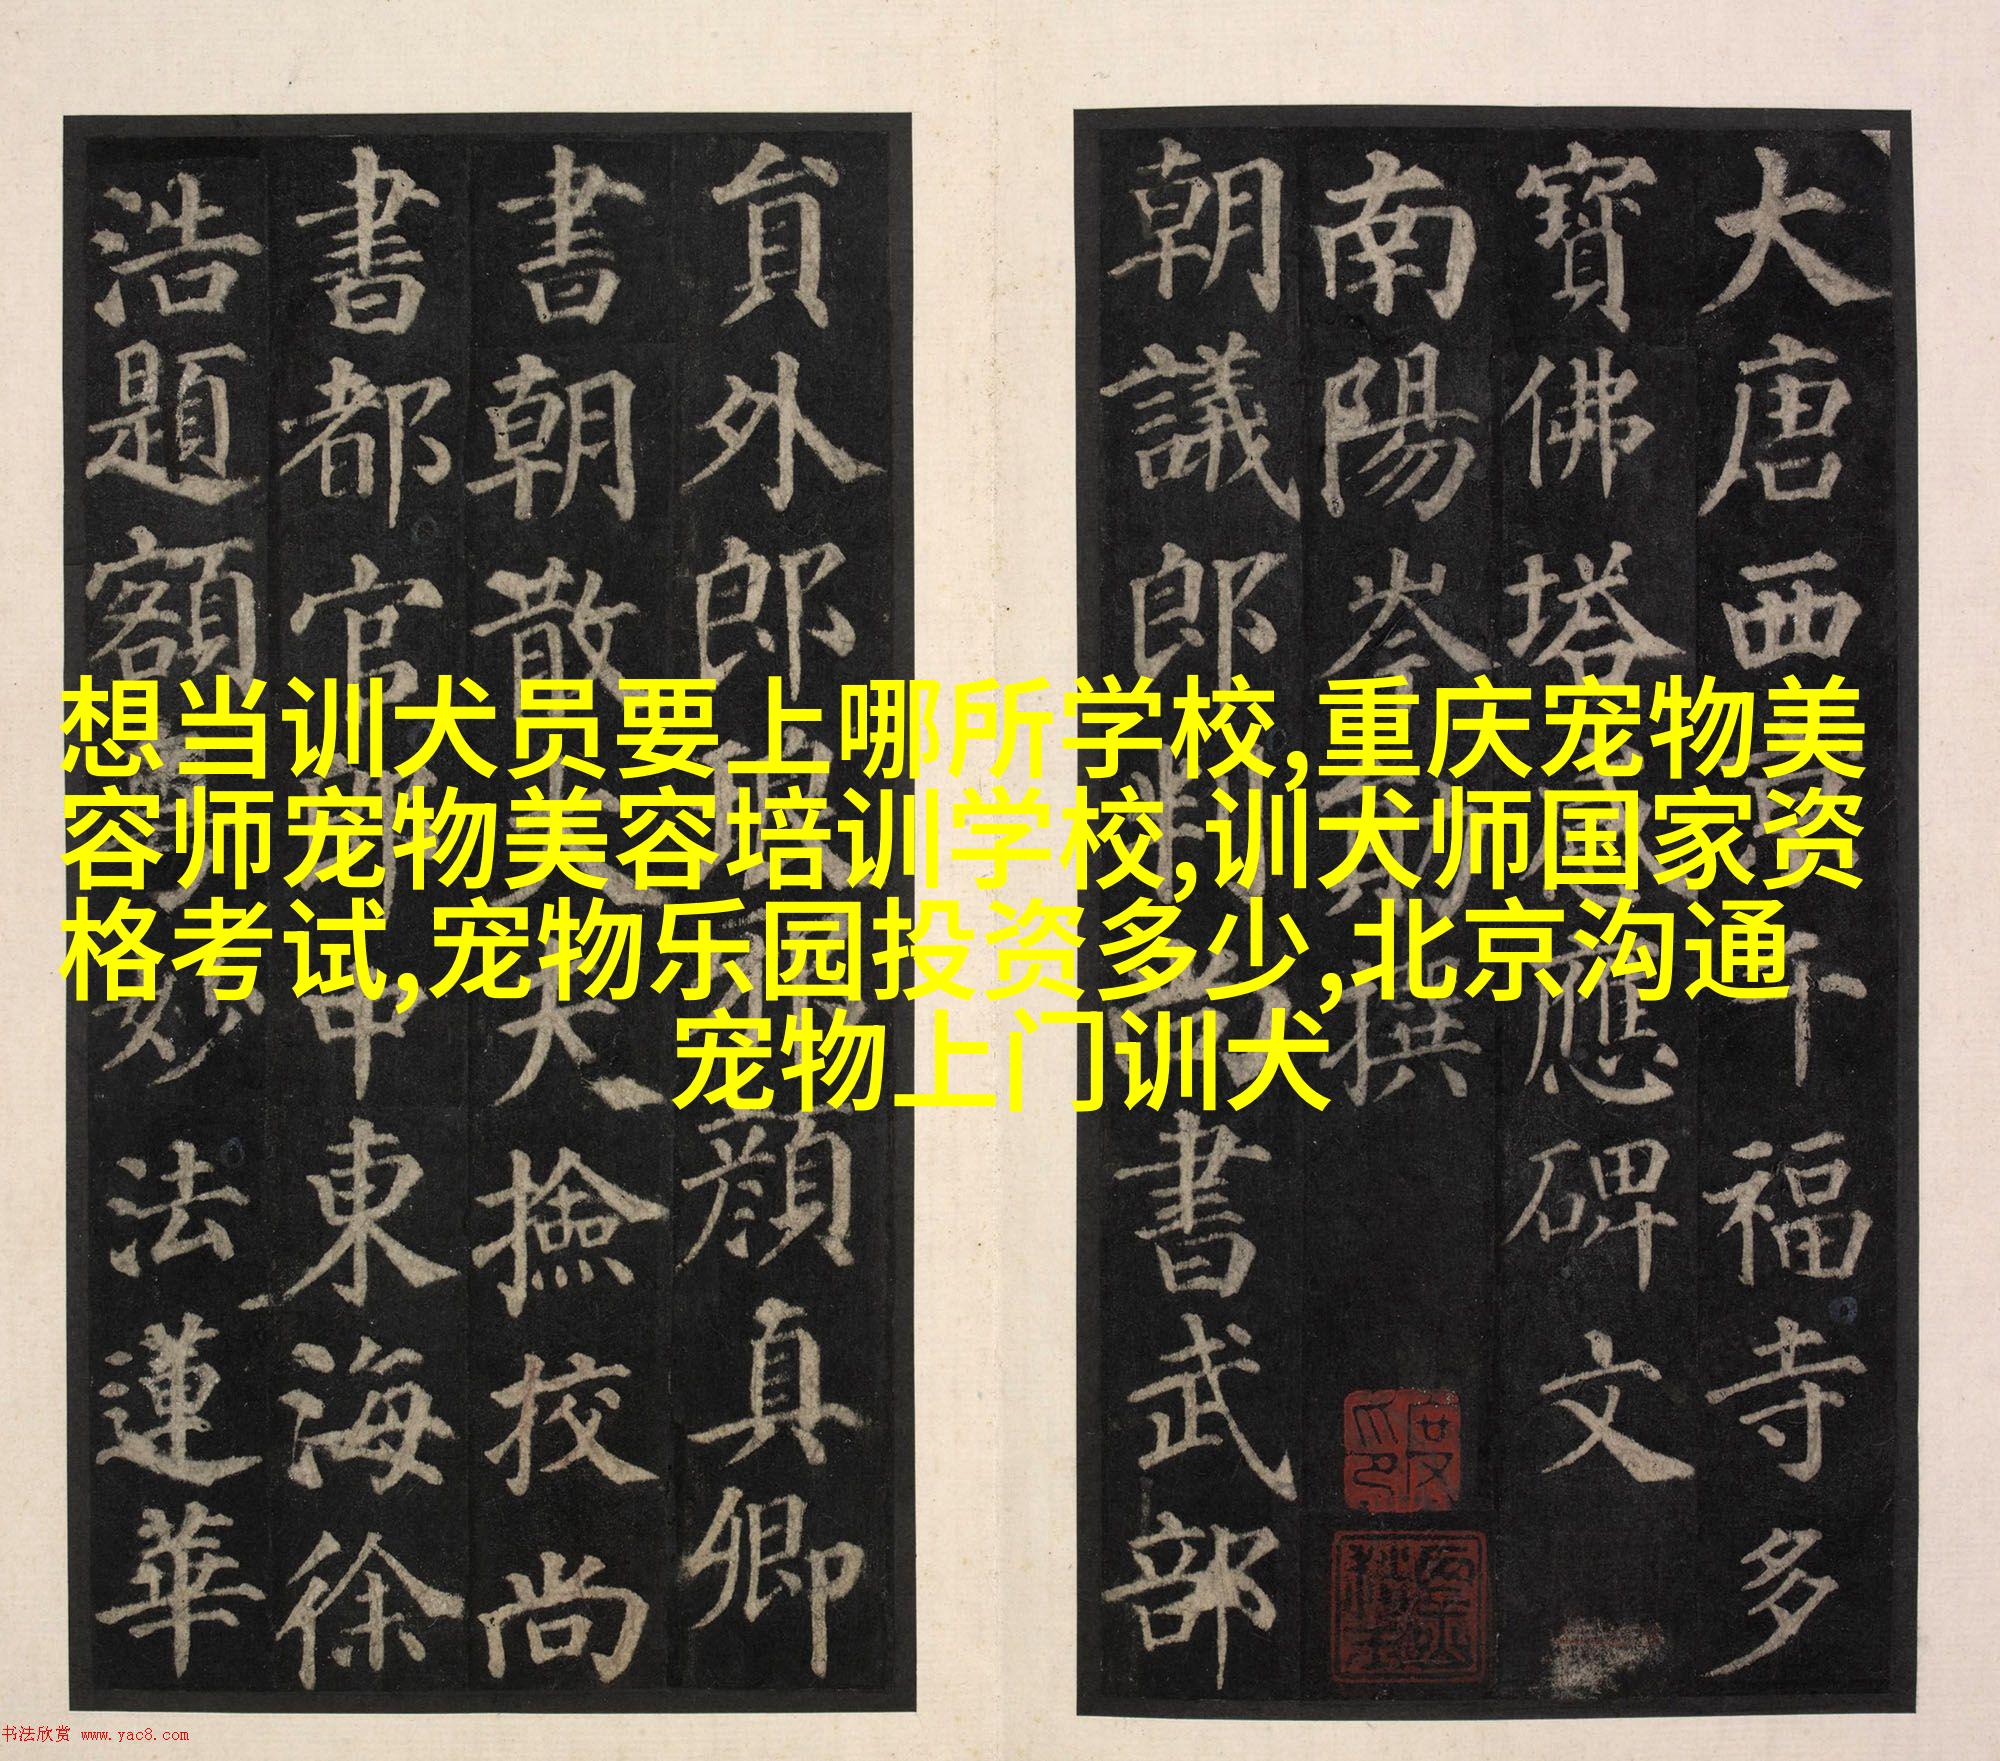 大唐西京千福寺多
寶佛塔感應碑文
南陽岑勛撰
朝議郎判尚書武部
貟外郎琅邪顏真卿
書朝散大夫撿校尚
書都官郎中東海徐
浩題額
妙法蓮華
想当训犬员要上哪所学校,重庆宠物美
容师宠物美容培训学校,训犬师国家资
格考试,宠物乐园投资多少,北京沟通
宠物上门训犬
书法欣赏 www.yac8.com